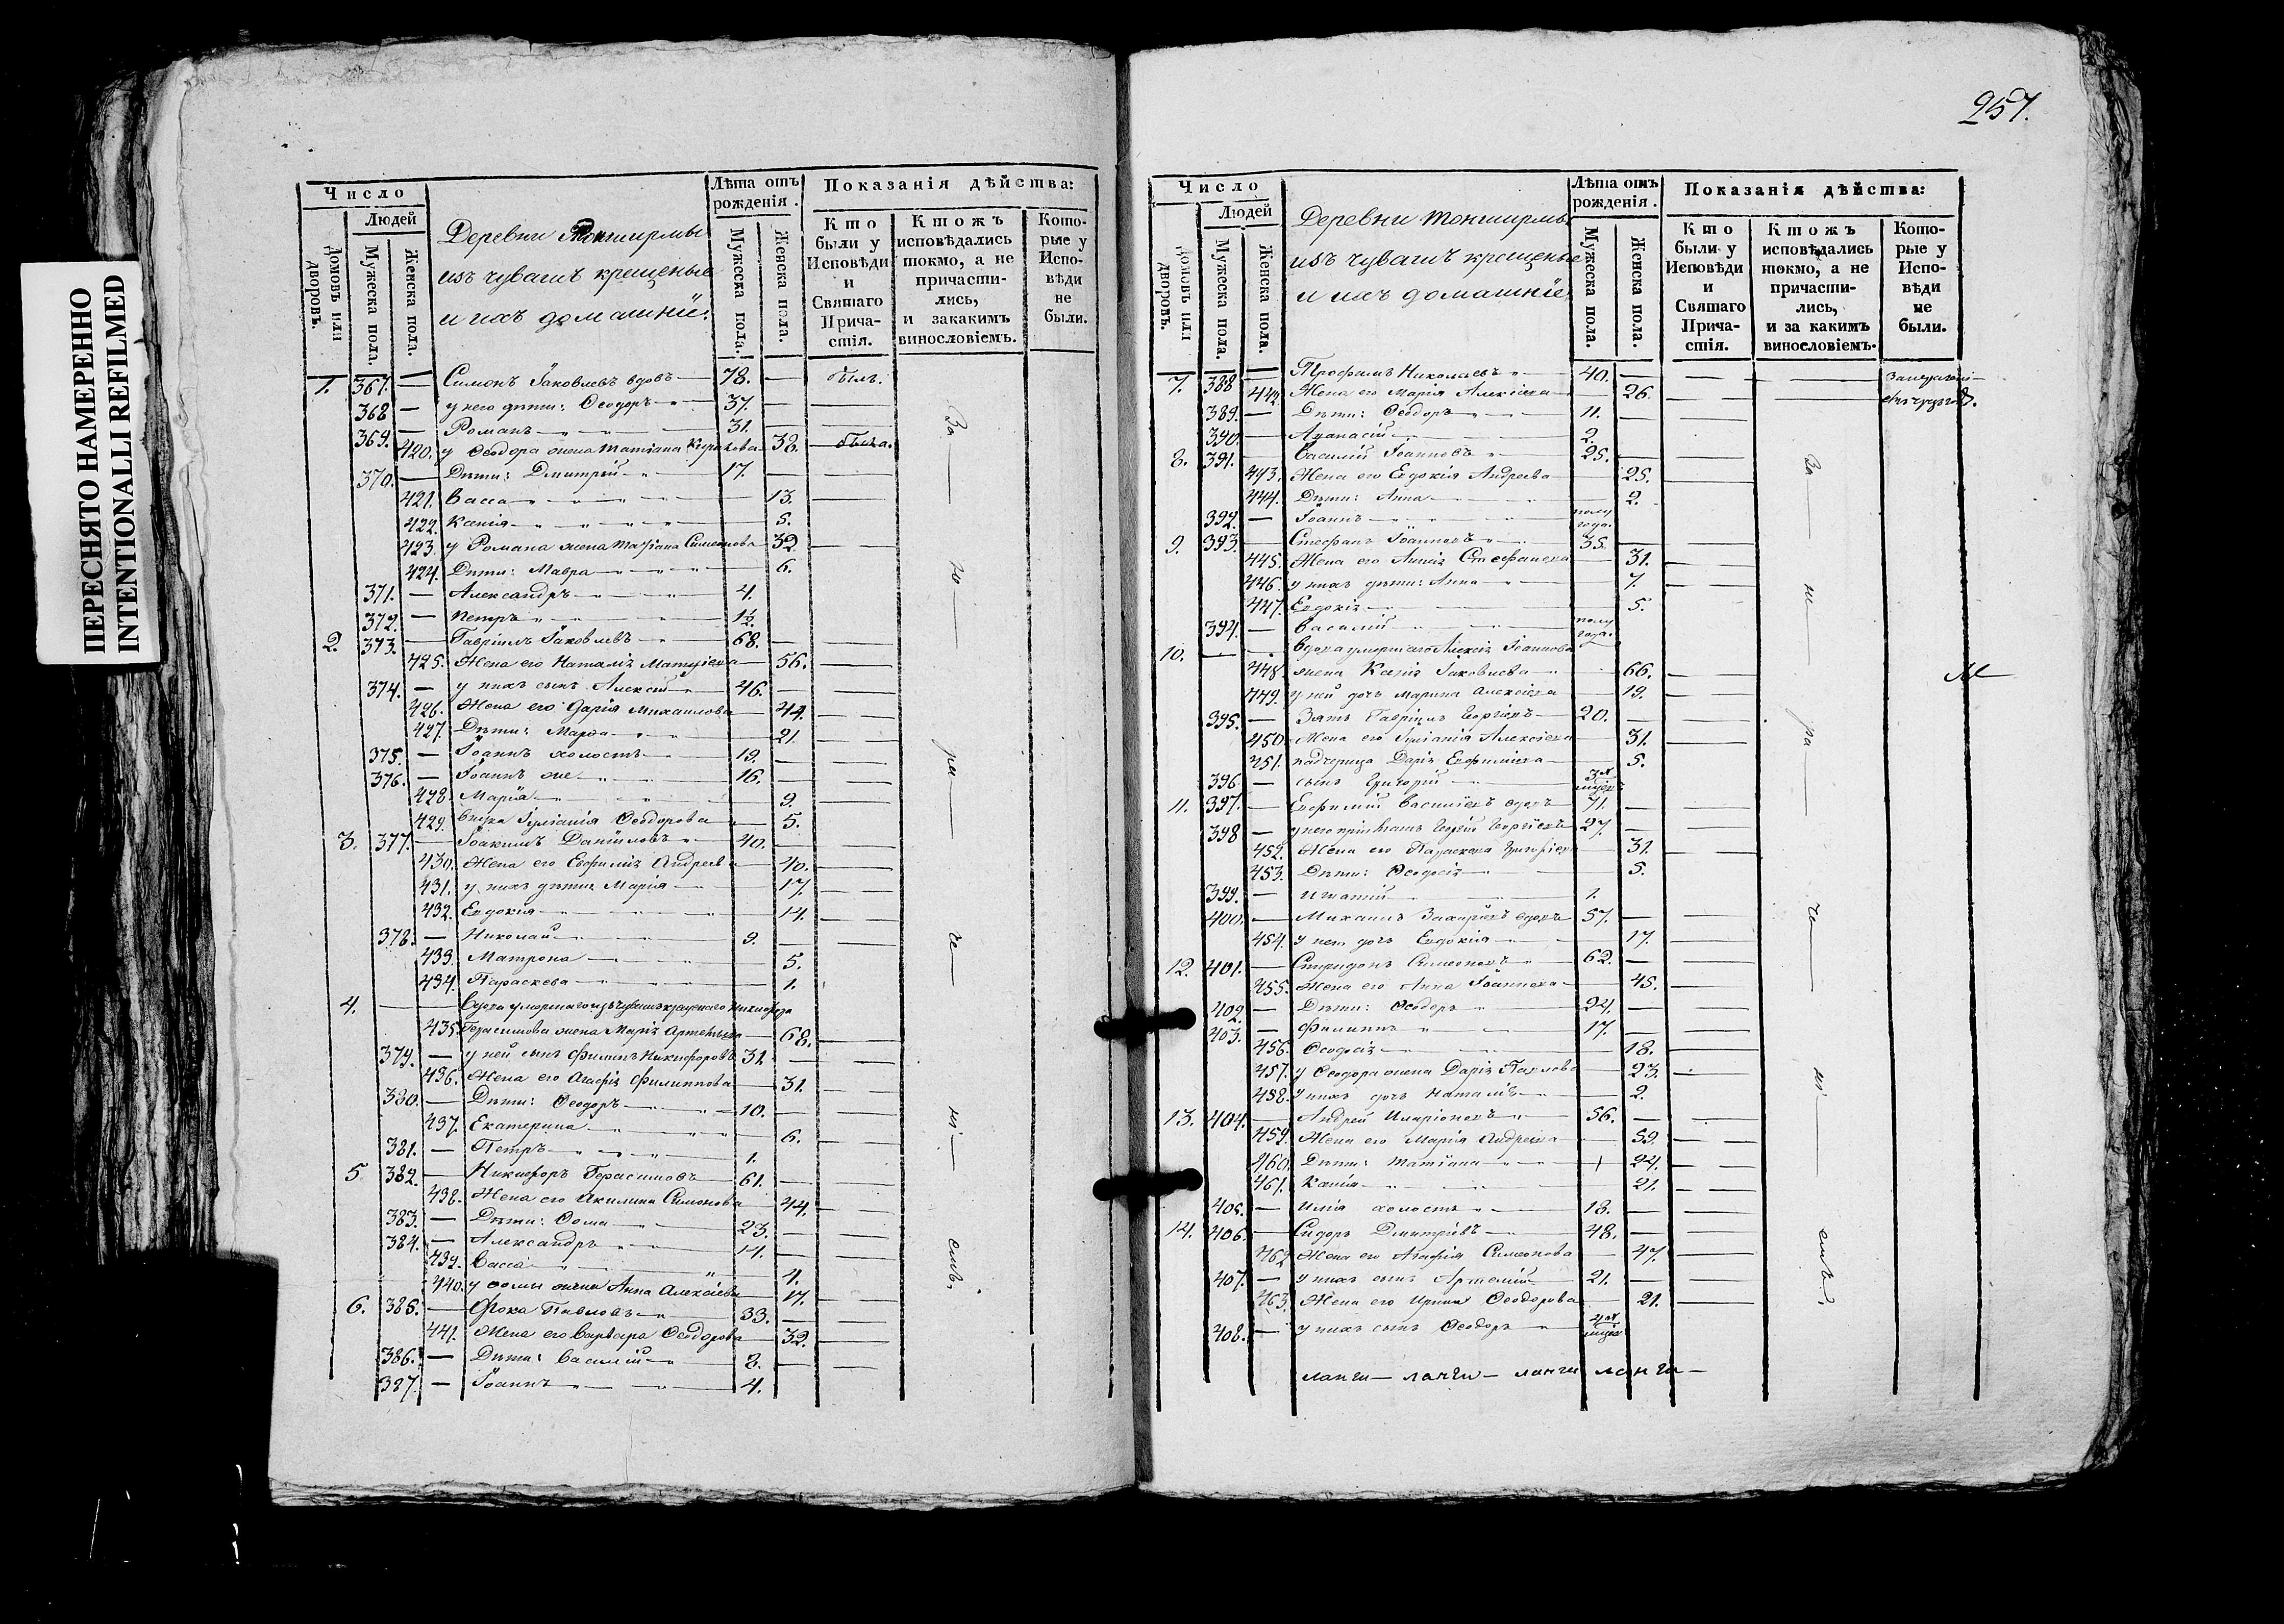 ПЕРЕСНЯТО НАМЕРЕННО
INTENTIONALLI REFILMED
Число
Людей
Домовъ или дворовъ.
Мужеска пола.
Женска пола.
Деревни
изъ чувашъ крещеные
и ихъ домашнїе.
Лѣта отъ рожденія.
Мужеска пола.
Женска пола.
Показанія дѣйства:
Кто были у Исповѣди и Святаго Причастія.
Ктожъ исповѣдались токмо, а не причастились, и закакимъ винословіемъ.
Которые у Исповѣди не были.
1. 367. — Симонъ Іаковлевъ вдовъ — 78. — былъ.
368 — у него дѣти: Ѳеодоръ — 37. —
369. — Романъ — 31.
420. у Ѳеодора жена Татіана — 38. — была.
370. — Дѣти: Дмитрій — 17. —
421. Васса — 13. —
422. Ксенія — 5. —
423. у Романа жена Татіана Симеонова — 32 —
424. Дѣти: Мавра — 6.
371. — Александръ — 4.
372. — Петръ — 1½.
2. 373. — Гавріилъ Іаковлевъ — 68. —
425. Жена его Наталіа — 56. —
374. — у нихъ сынъ Алексій — 46. —
426. Жена его Дарія Михаилова — 44. —
427. Дѣти: Марѳа — 21 —
375. — Іоаннъ холостъ — 19. —
376. — Іоаннъ же — 16. —
428. Марїа — 9. —
429. внука Іуліанія Ѳеодорова — 5. —
3. 377. — Іоакимъ Данїиловъ — 40. —
430. Жена его Евфиміа Андреева — 40. —
431. у нихъ дѣти Марія — 17. —
432. Евдокія — 14. —
378. — Николай — 9. —
433. Матрона — 5. —
434. Параскева — 1.
4. — Вдова умершаго изъ чувашъ крещенаго Никифора
435. Герасимова жена Маріа — 68. —
379. — у ней сынъ Филипъ Никифоровъ 31. —
436. Жена его Агафіа Филиппова — 31. —
380. — Дѣти: Ѳеодоръ — 10. —
437. Екатерина — 6. —
381. — Петръ — 1.
5 382. — Никифоръ Герасимовъ — 61. —
438. Жена его Акилина Симонова — 44. —
383. — Дѣти: Ѳома — 23. —
384. — Александръ — 14. —
439. Васса — 4. —
440. у Ѳомы жена Анна Алексіева — 17. —
6. 385. — Фока Павловъ — 33. —
441. Жена его Варвара Ѳеодорова — 32. —
386. — Дѣти: Василій — 8. —
387. — Іоаннъ — 4.
За — но — ри — че — ні — емъ.
257.
Число
Людей
Домовъ или дворовъ.
Мужеска пола.
Женска пола.
Деревни Тонширмы
изъ чувашъ крещеные
и ихъ домашнїе.
Лѣта отъ рожденія.
Мужеска пола.
Женска пола.
Показанія дѣйства:
Кто были у Исповѣди и Святаго Причастія.
Ктожъ исповѣдались токмо, а не причастились, и за какимъ винословіемъ.
Которые у Исповѣди не были.
7. 388 — Трофимъ Николаевъ — 40. —
442. Жена его Марія Алексіева — 26. —
389. — Дѣти: Ѳеодоръ — 11. —
390. — Аѳанасій — 2.
8. 391. — Василій Іоанновъ — 25. —
443. Жена его Евдокія Андреева — 25. —
444. Дѣти: Анна — 2.
392. — Іоаннъ — полу года.
9. 393. — Стефанъ Іоанновъ — 35. —
445. Жена его Стефанова — 31. —
446. у нихъ дѣти: Анна — 7. —
447. Евдокіа — 5.
394. — Василій — полу года.
10. — Вдова умершаго Алексія Іоаннова
448. жена Ксеніа Іаковлева — 66. —
449. у ней дочь Марина Алексіева — 19. —
395. — Зять Гавріилъ Георгіевъ — 20. —
450. Жена его Іуліанія Алексіева — 31. —
451. падчерица Даріа Евфиміева — 5.
396 — сынъ Григорій —
11. 397. — Евфимій Василіевъ вдовъ — 71. —
398 — у него Георгій Георгіевъ 27. —
452. Жена его Параскева Григоріева — 31. —
453. Дѣти: Ѳеодосіа — 5.
399. — Игнатій — 1.
400. — Михаилъ Захаріевъ вдовъ 57. —
454. у него дочь Евдокія — 17. —
12. 401. — Спиридонъ Симеоновъ — 62. —
455. Жена его Анна Іоаннова — 45. —
402. — Дѣти: Ѳеодоръ — 24. —
403. — Филиппъ — 17. —
456. Ѳеодосіа — 18. —
457. у Ѳеодора жена Даріа Павлова — 23. —
458. у нихъ дочь Наталіа — 2.
13. 404. — Андрей Иларіоновъ — 56. —
459. Жена его Марія Андреева — 59. —
460. Дѣти: Татїана — 24. —
461. Ксенія — 21. —
405. — Илія холостъ — 18. —
14. 406. — Сидоръ Дмитріевъ — 48. —
462 Жена его Агафія Симеонова — 47. —
407. — у нихъ сынъ Артемій — 21. —
463. Жена его Ирина Ѳеодорова — 21. —
408. — у нихъ сынъ Ѳеодоръ —
За — не — ра — че — ні — емъ.